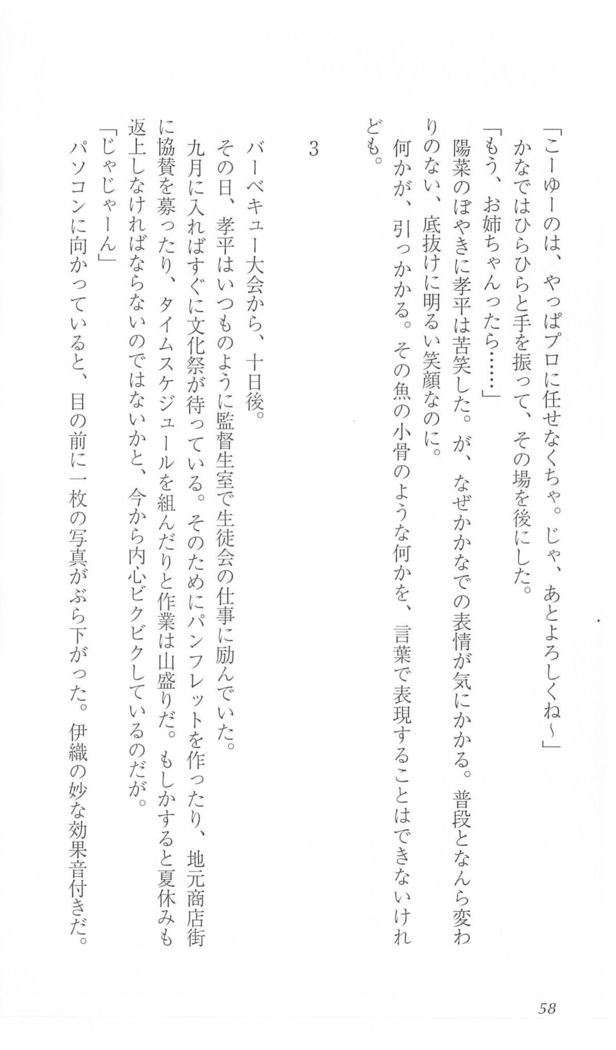 「こーゆーのは、やっぱプロに任せなくちゃ。じゃ、あとよろしくね～」
かなではひらひらと手を振って、その場を後にした。
「もう、お姉ちゃんったら……」
陽菜のぼやきに孝平は苦笑した。が、なぜかかなでの表情が気にかかる。普段となんら変わ
りのない、底抜けに明るい笑顔なのに。
何かが、引っかかる。その魚の小骨のような何かを、言葉で表現することはできないけれ
ども。
3
バーベキュー大会から、十日後。
その日、孝平はいつものように監督生室で生徒会の仕事に励んでいた。
九月に入ればすぐに文化祭が待っている。そのためにパンフレットを作ったり、地元商店街
に協賛を募ったり、タイムスケジュールを組んだりと作業は山盛りだ。もしかすると夏休みも
返上しなければならないのではないかと、今から内心ビクビクしているのだが。
「じゃじゃーん」
パソコンに向かっていると、目の前に一枚の写真がぶら下がった。伊織の妙な効果音付きだ。
58